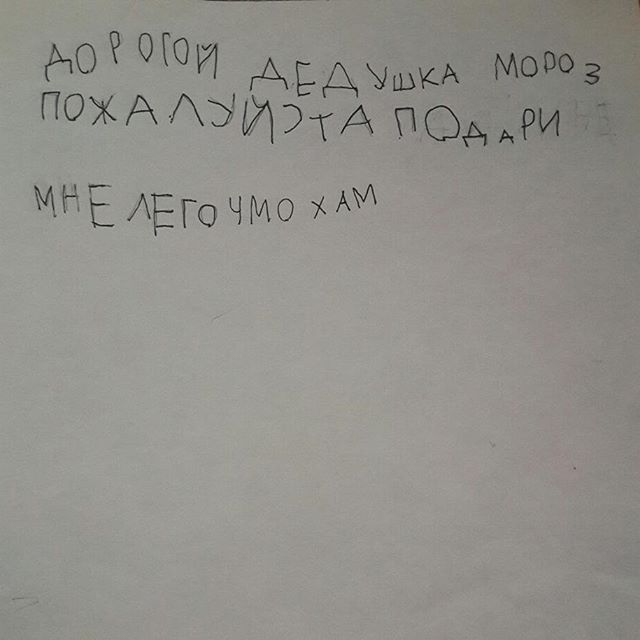 ДОРОГОЙ ДЕДУШКА МОРОЗ
ПОЖАЛУЙСТА ПОДАРИ
МНЕ ЛЕГО ЧМО ХАМ